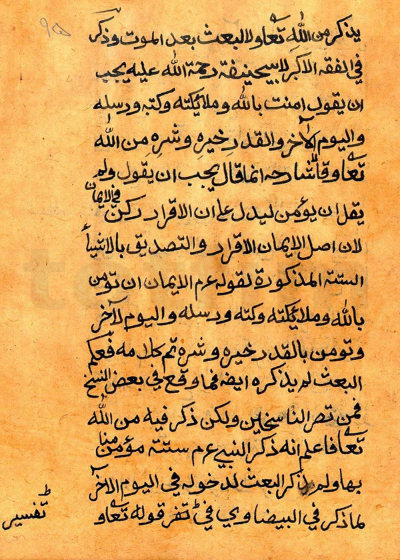 يذكر من الله تعاو لا البعث بعد الموت وذكر
في الفقه الاكبر لابيحنيفه رحمة الله عليه يجب
ان يقول امنت بالله وملائكته وكتبه ورسله
واليوم الآخر والقدر خيره وشره من الله
تعاو قال شارحه انما قال يجب ان يقول ولم
يقل ان يؤمن ليدل على ان الاقرار ركن في الايمان
لان اصل الايمان الاقرار والتصديق بالاشيأ
الستة المذكورة لقوله عم الايمان ان تؤمن
بالله وملائكته وكتبه ورسله واليوم الآخر
وتومن بالقدر خيره وشره تم كلامه فعكم
البعث لم يذكره ايضه فما وقع في بعض النسخ
فمن تصر الناسخين ولكن ذكر فيه من الله
تعا فاعلم انه ذكر النبي عم ستة مؤمن منا
بها ولم يذكر البعث لدخوله في اليوم الآخر
لما ذكر في البيضاوي في تفر قوله تعاو
تفسير